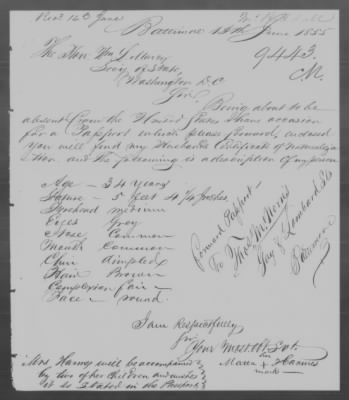 Recd 16th June
Baltimore 14th June 1855
9443
M.
The Hon Wm L Marcy
Secy of State,
Washington D C
Sir,
Being about to be
absent from the United States I have occasion
for a Passport which please forward, enclosed
you will find my Husbands Certificate of Naturaliza
tion, and the following is a description of my person
Age – 34 Years
Stature – 5 feet 4 1/4 Inches
Forehead medium
Eyes Grey
Nose Common
Mouth Common
Chin dimpled
Hair Brown
Complexion fair
Face – round.
Forward Passport –
To Thos M Norris
Gay & Lombard Sts
Baltimore
I am Respectfully
Sir
Your Most Obt Svt
her
Maria + Hannes
mark
Mrs Hannes will be accompanied
by two of her Children and wishes
it so Stated in the Passport